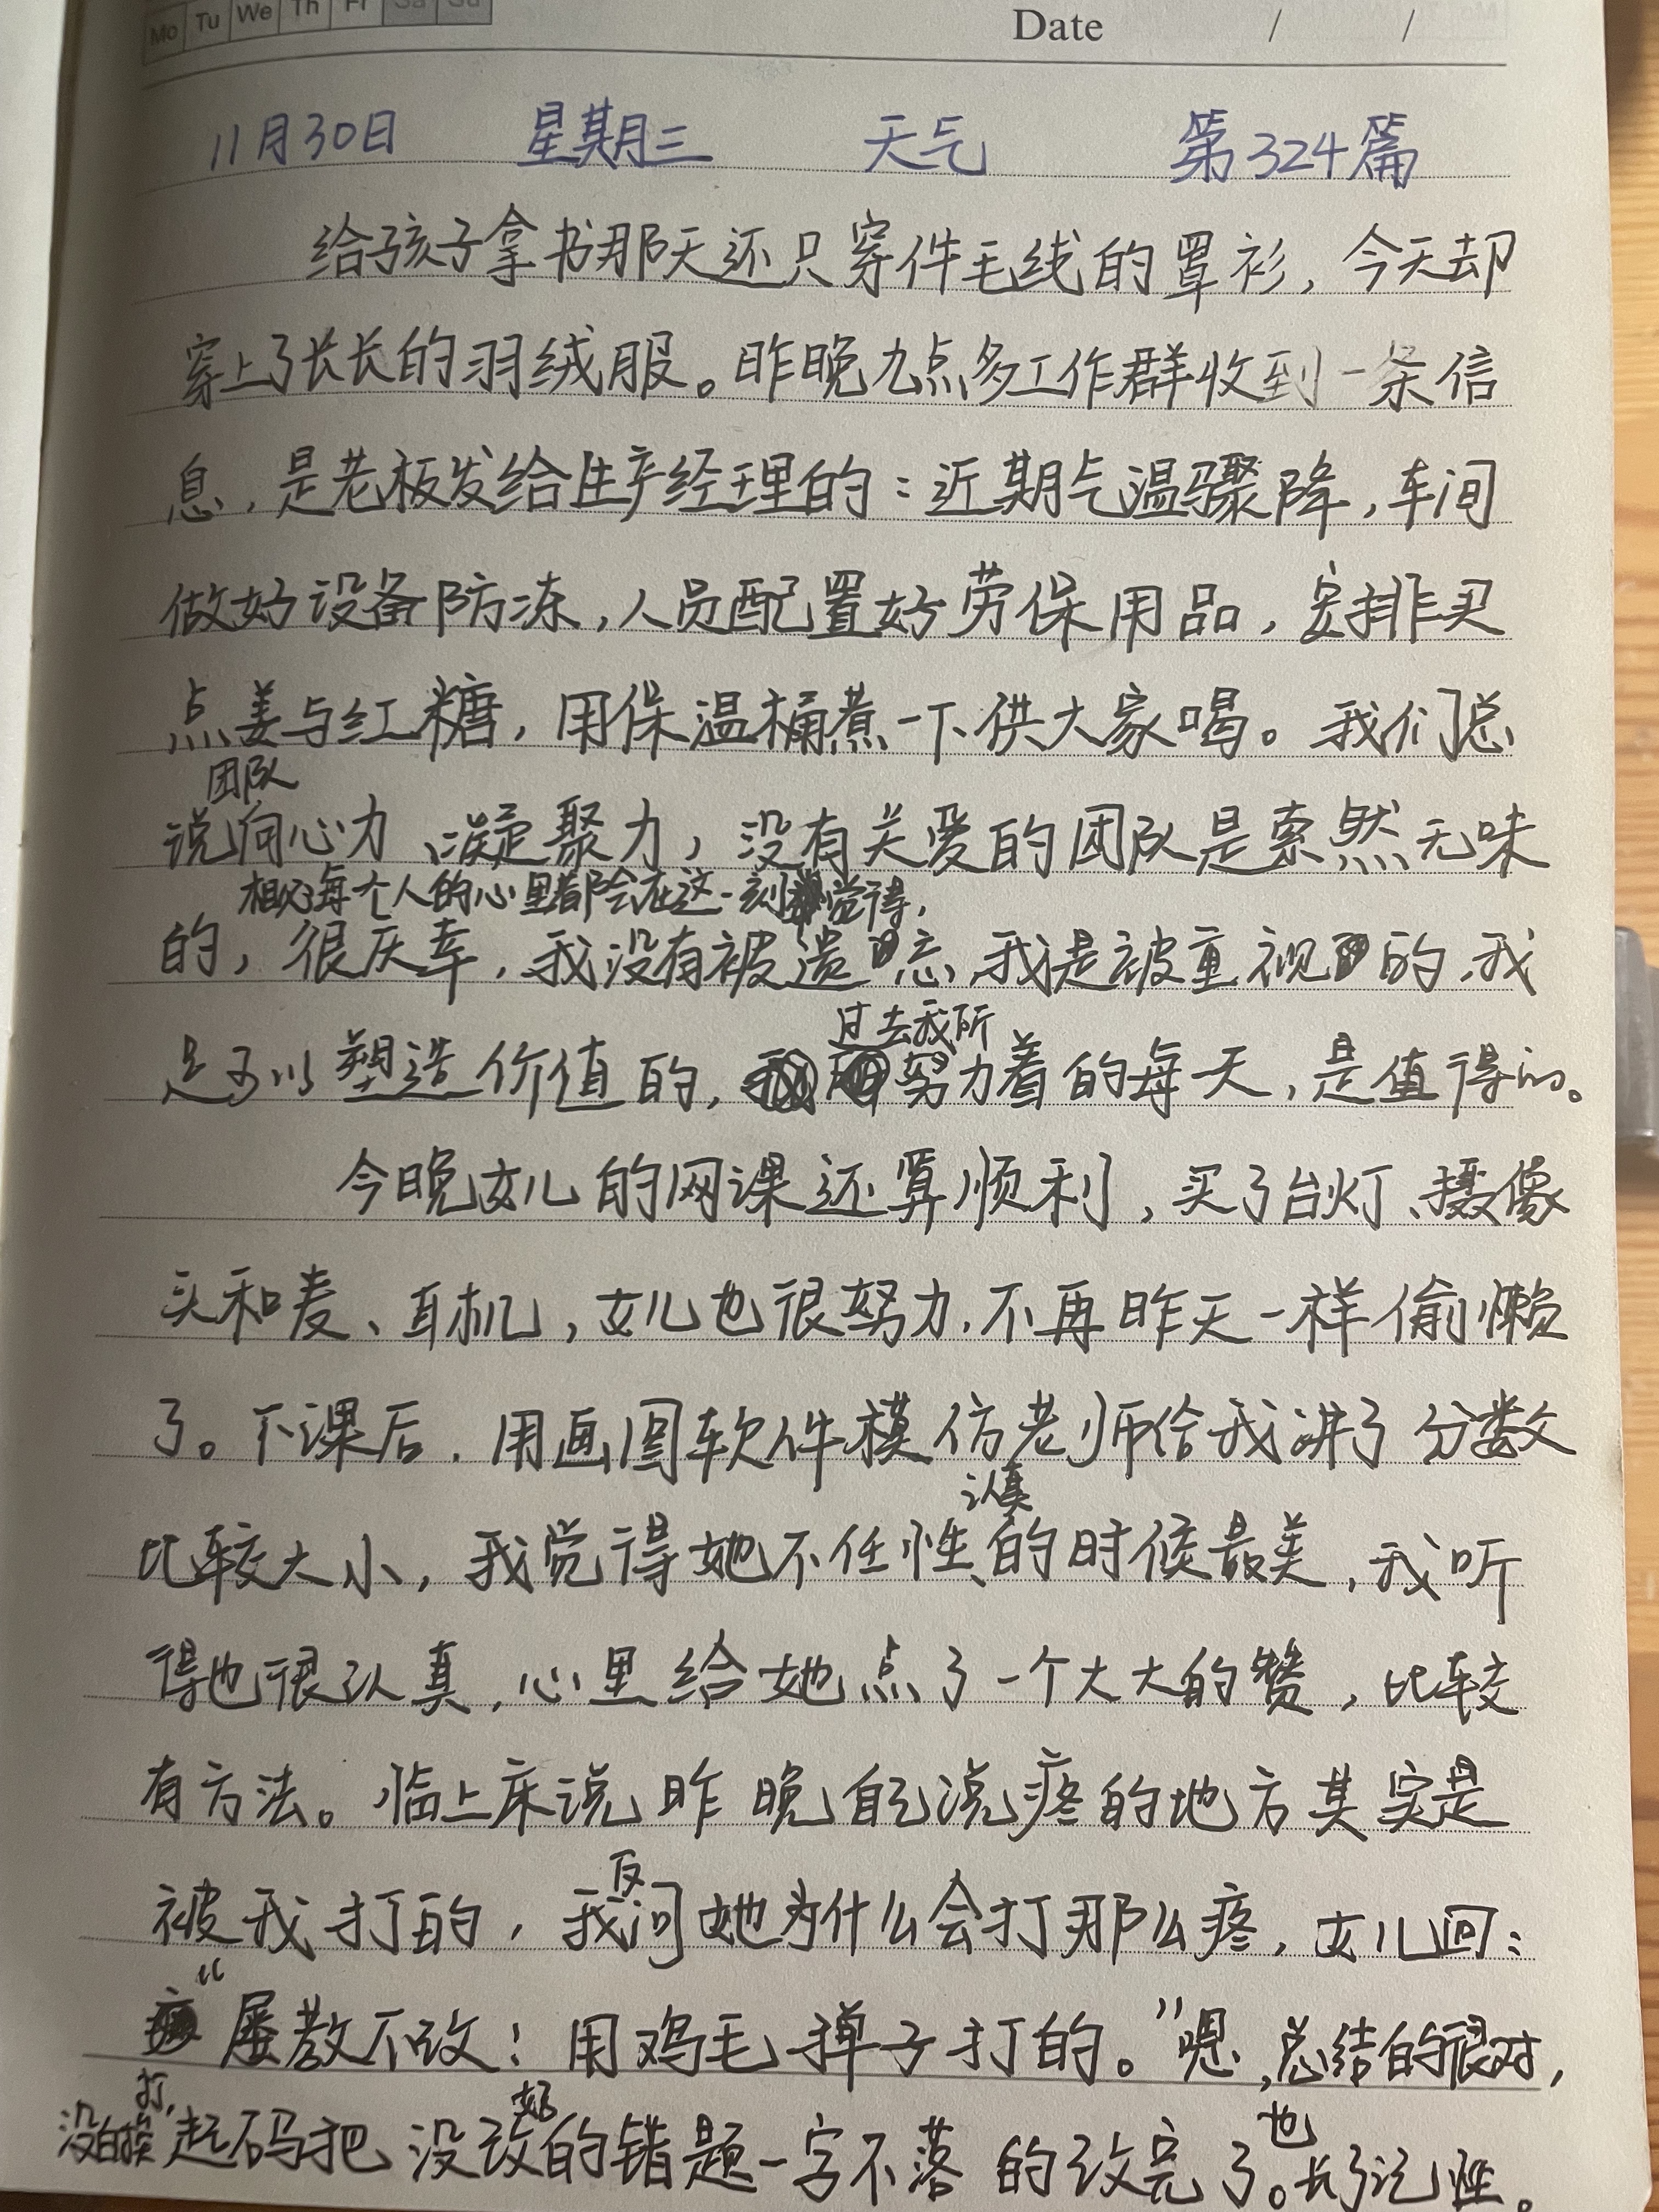 Mo Tu We Th Fr Sa Su
Date / /
11月30日 星期三 天气 第324篇
给孩子拿书那天还只穿件毛线的罩衫，今天却
穿上了长长的羽绒服。昨晚九点多工作群收到一条信
息，是老板发给生产经理的：近期气温骤降，车间
做好设备防冻，人员配置好劳保用品，安排买
点姜与红糖，用保温桶煮一下供大家喝。我们总
团队
说向心力、凝聚力，没有关爱的团队是索然无味
相信每个人的心里都会在这一刻觉得，
的，很庆幸，我没有被遗忘，我是被重视的，我
过去我所
是可以塑造价值的，努力着的每天，是值得的。
今晚女儿的网课还算顺利，买了台灯、摄像
头和麦、耳机，女儿也很努力，不再昨天一样偷懒
了。下课后，用画图软件模仿老师给我讲了分数
认真
比较大小，我觉得她不任性、的时候最美，我听
得也很认真，心里给她点了一个大大的赞，比较
有方法。临上床说昨晚自己说疼的地方其实是
反
被我打的，我问她为什么会打那么疼，女儿回：
“屡教不改！用鸡毛掸子打的。”嗯，总结的很对，
打， 好 也
没白挨起码把没改的错题一字不落的改完了。长了记性。